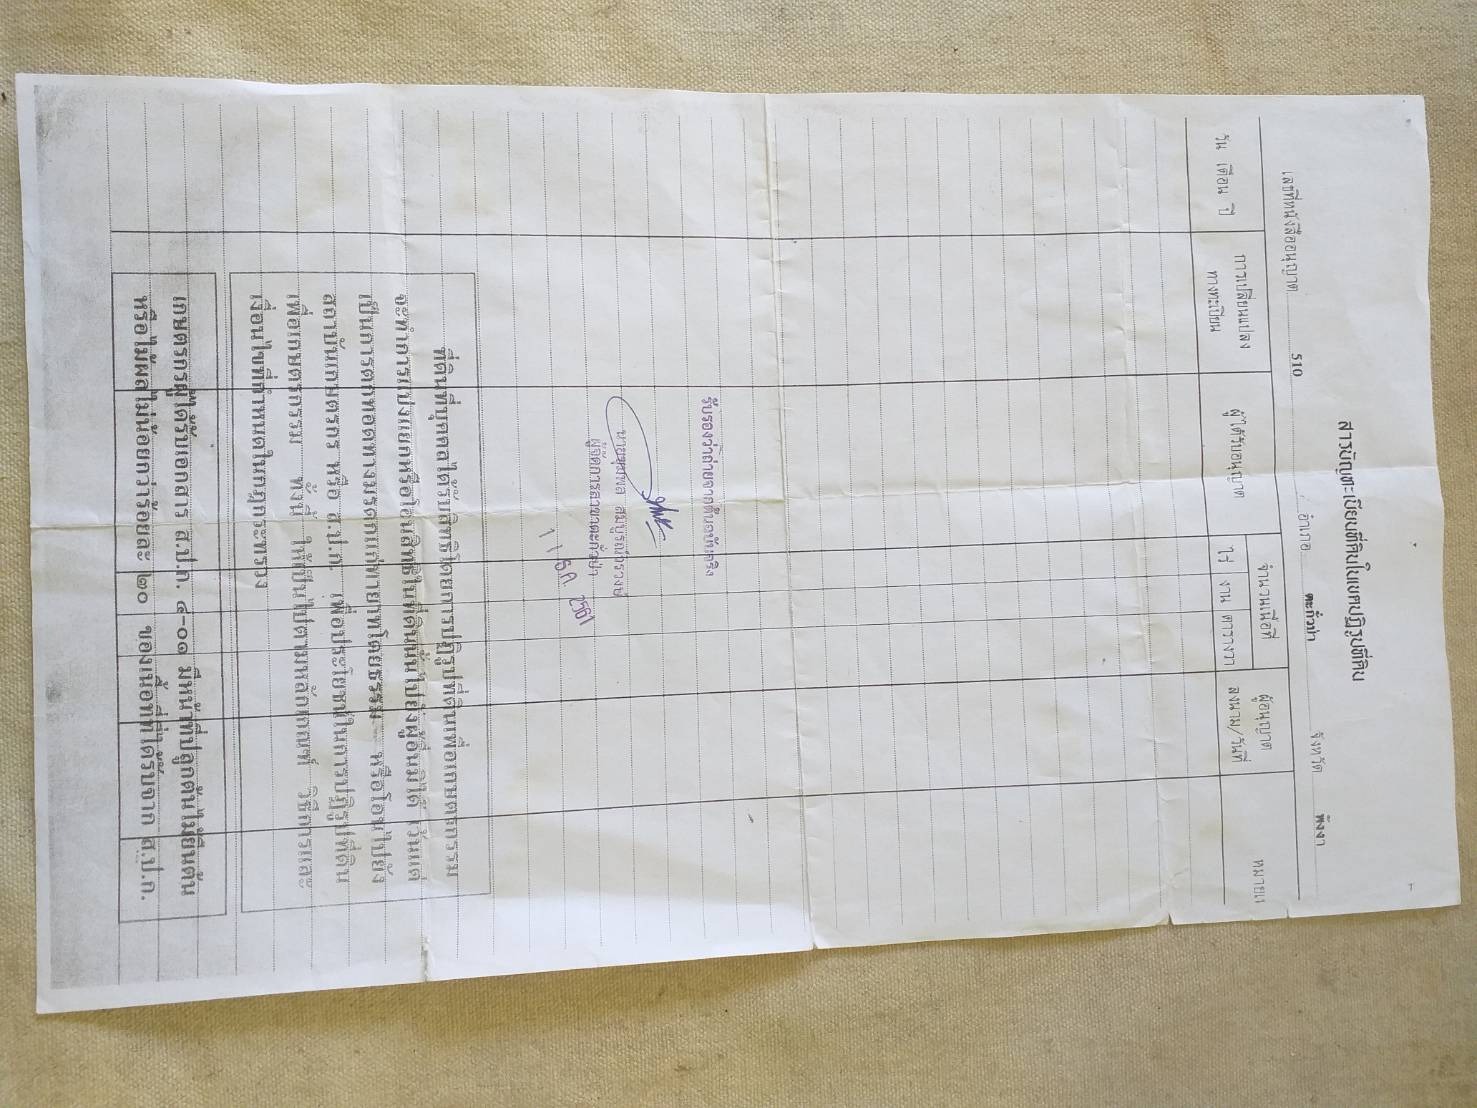 สารบัญทะเบียนที่ดินในเขตปฏิรูปที่ดิน
เลขที่หนังสืออนุญาต 510 อำเภอ ตะกั่วป่า จังหวัด พังงา
วัน เดือน ปี
การเปลี่ยนแปลง
ทางทะเบียน
ผู้ได้รับอนุญาต
จำนวนเนื้อที่
ไร่ งาน ตารางวา
ผู้อนุญาต
ลงนาม/วันที่
หมายเห
รับรองว่าถ่ายจากต้นฉบับจริง
สมบูรณ์วรวงษ์
ผู้จัดการสาขาตะกั่วป่า
2561
ที่ดินที่บุคคลได้รับสิทธิโดยการปฏิรูปที่ดินเพื่อเกษตรกรรม
จะทำการแบ่งแยกหรือโอนสิทธิในที่ดินนั้นไปยังผู้อื่นมิได้ เว้นแต่
เป็นการตกทอดทางมรดกแก่ทายาทโดยธรรม หรือโอนไปยัง
สถาบันเกษตรกร หรือ ส.ป.ก. เพื่อประโยชน์ในการปฏิรูปที่ดิน
เพื่อเกษตรกรรม ทั้งนี้ ให้เป็นไปตามหลักเกณฑ์ วิธีการและ
เงื่อนไขที่กำหนดในกฎกระทรวง
เกษตรกรผู้ได้รับเอกสาร ส.ป.ก. ๔-๐๑ มีหน้าที่ปลูกต้นไม้ยืนต้น
หรือไม้ผลไม่น้อยกว่าร้อยละ ๒๐ ของเนื้อที่ที่ได้รับจาก ส.ป.ก.